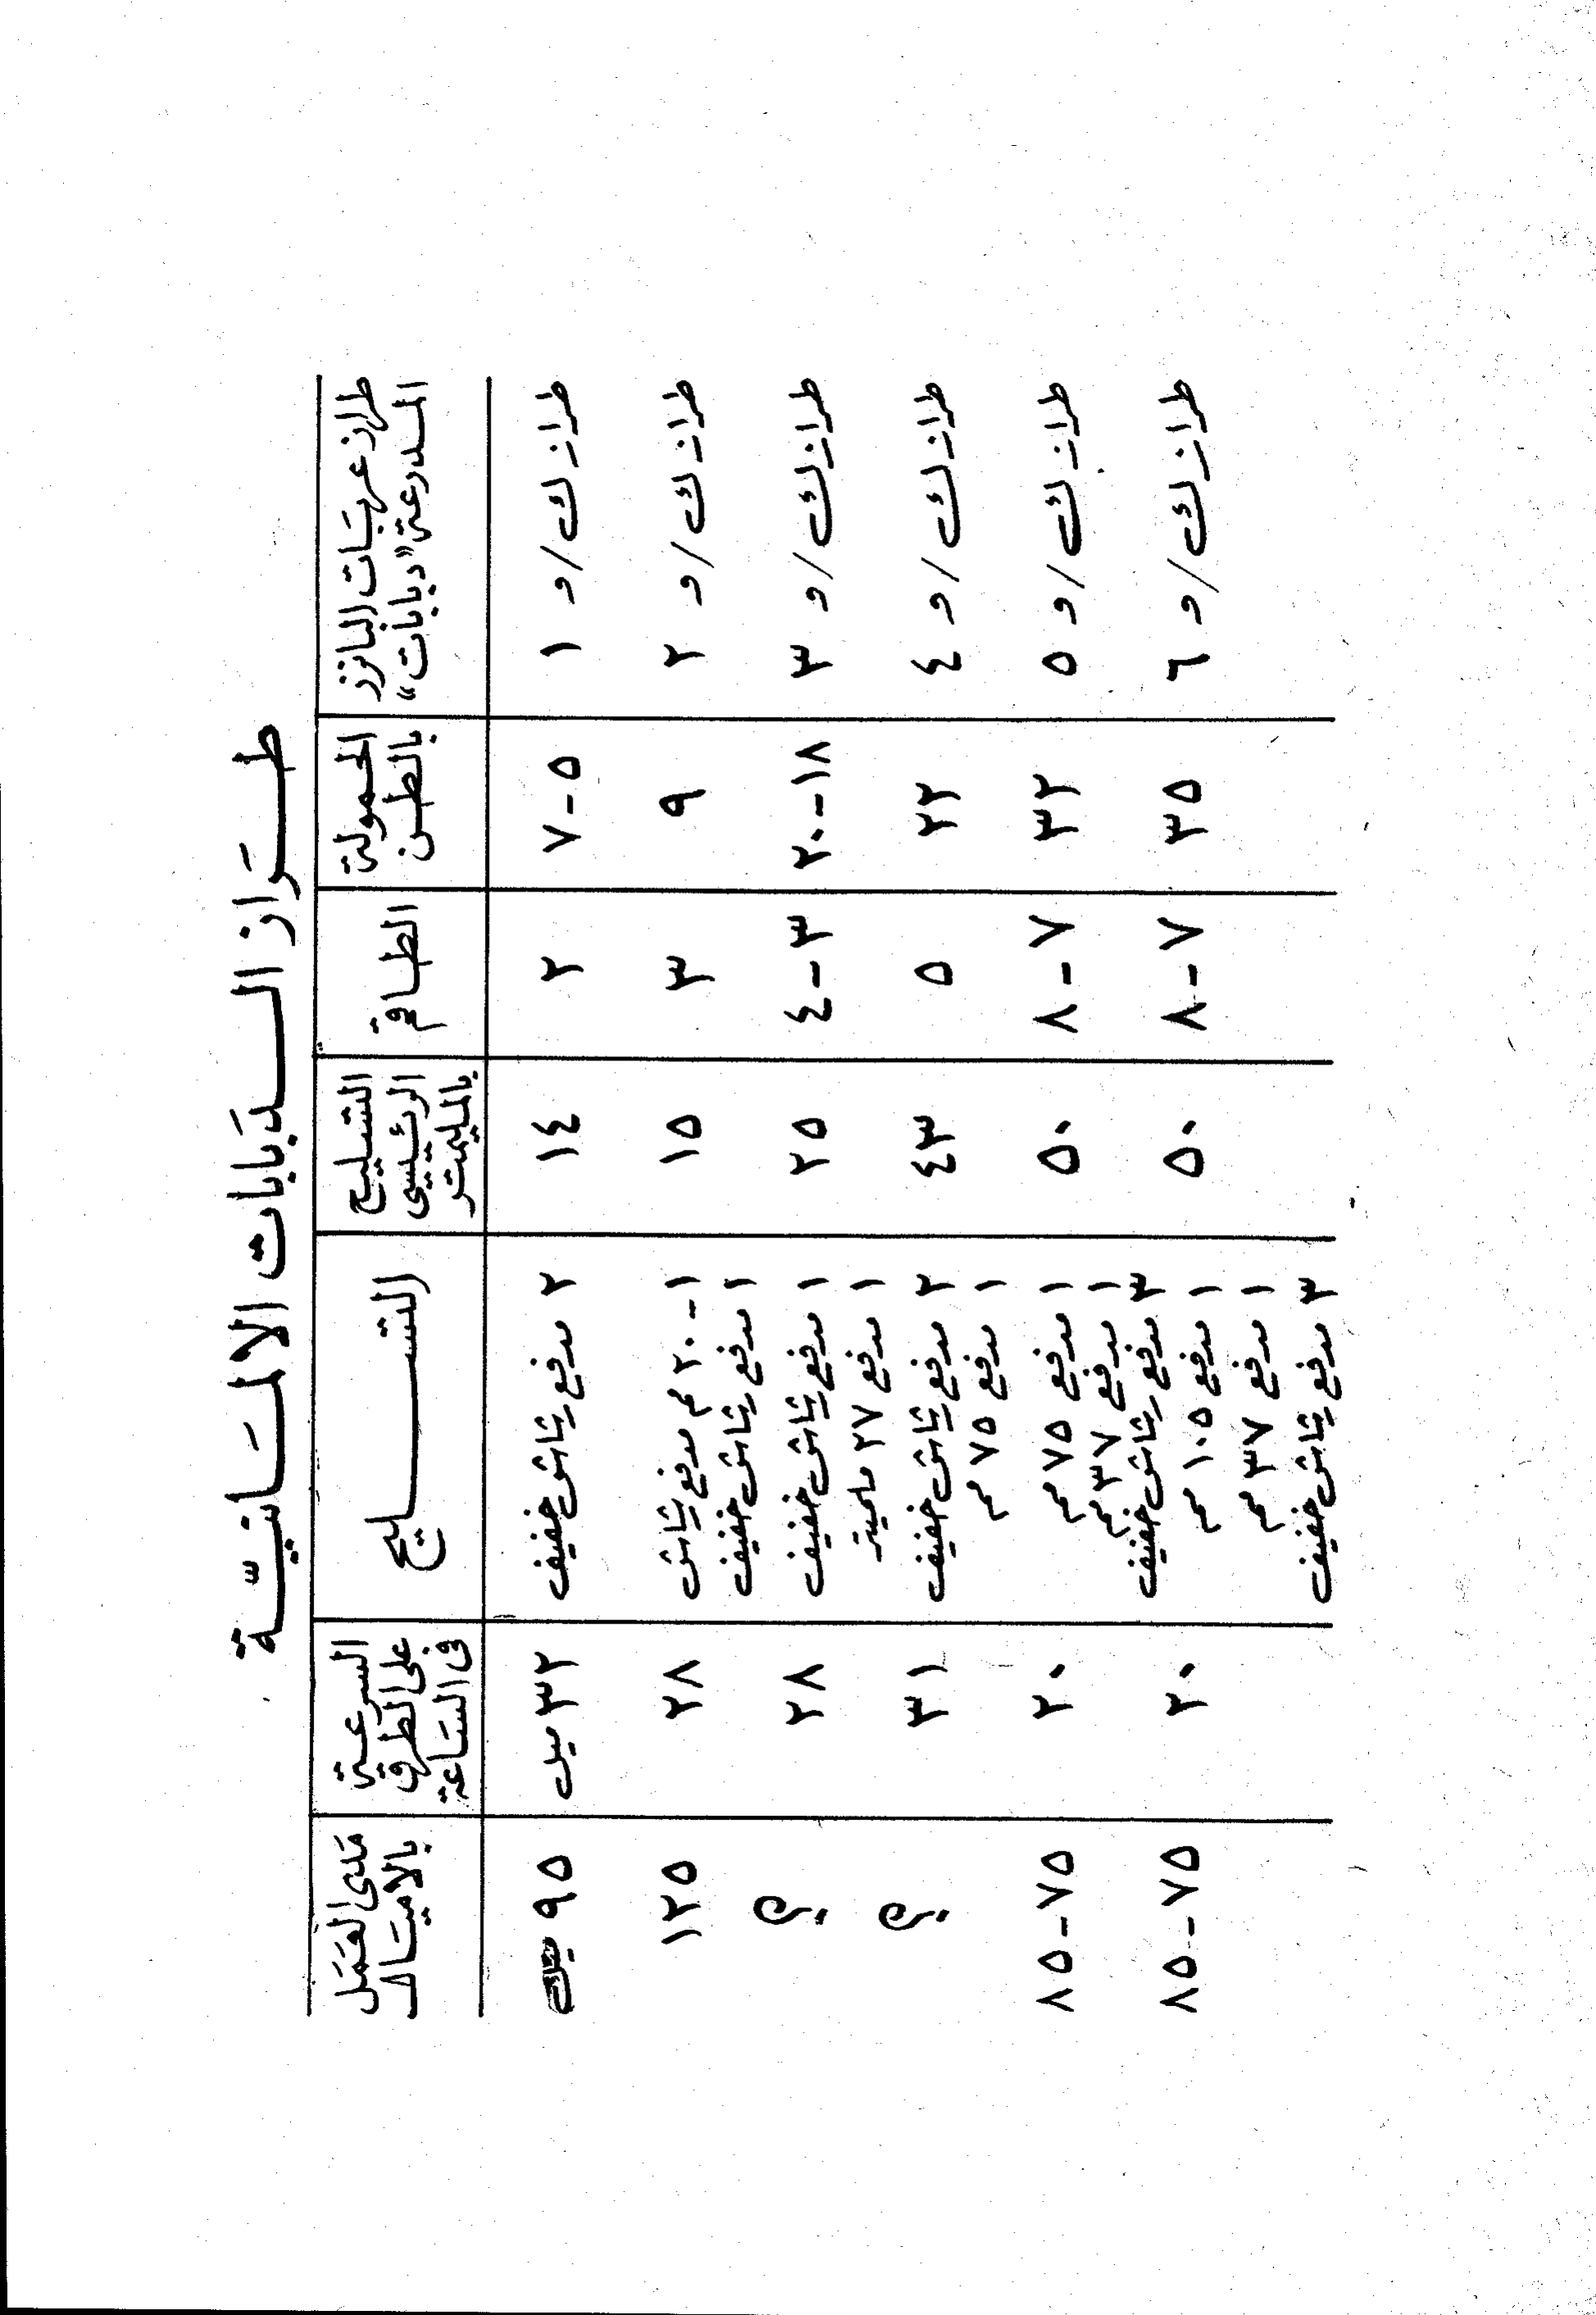 طراز الدبابات الالمانيّة
طراز عربات البانزر المدرعة "دبابات" | الحمولة بالطن | الطاقم | التسليح الرئيسي بالمليمتر | التسليح | السرعة على الطرق في الساعة | مدى العمل بالاميال
طراز ك/و ١ | ٥-٧ | ٢ | ١٤ | ٢ مدفع رشاش خفيف | ٣٢ ميل | ٩٥
طراز ك/و ٢ | ٩ | ٣ | ١٥ | ١-٢٠ مم مدفع رشاش | ٢٨ | ١٢٥
١ مدفع رشاش خفيف
طراز ك/و ٣ | ١٨-٢٠ | ٣-٤ | ٢٥ | ١ مدفع رشاش خفيف | ٢٨ | ؟
١ مدفع ٢٧ ملميتر
طراز ك/و ٤ | ٢٢ | ٥ | ٤٣ | ٢ مدفع رشاش خفيف | ٣١ | ؟
١ مدفع ٧٥ مم
طراز ك/و ٥ | ٣٢ | ٧-٨ | ٥٠ | ١ مدفع ٧٥ مم | ٢٠ | ٧٥-٨٥
١ مدفع ٣٧ مم
٣ مدفع رشاش خفيف
طراز ك/و ٦ | ٣٥ | ٧-٨ | ٥٠ | ١ مدفع ١٠٥ مم | ٢٠ | ٧٥-٨٥
١ مدفع ٣٧ مم
٣ مدفع رشاش خفيف